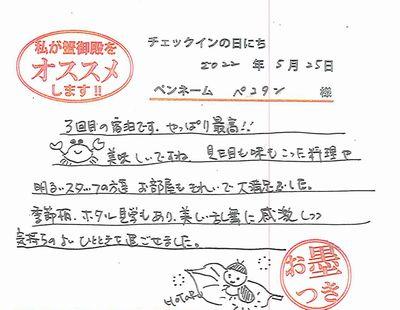 私が蟹御殿を
オススメ
します!!
チェックインの日にち
2022 年 5月 25日
ペンネーム ペコタン 様
3回目の宿泊です。やっぱり最高!!
美味しいですね、見た目も味もこった料理や
明るいスタッフの方達 お部屋もきれいで大満足でした。
季節柄、ホタル見学もあり、美しい乱舞に感激しつつ
気持ちのよいひとときを過ごせました。
HOTARU
お墨
つき